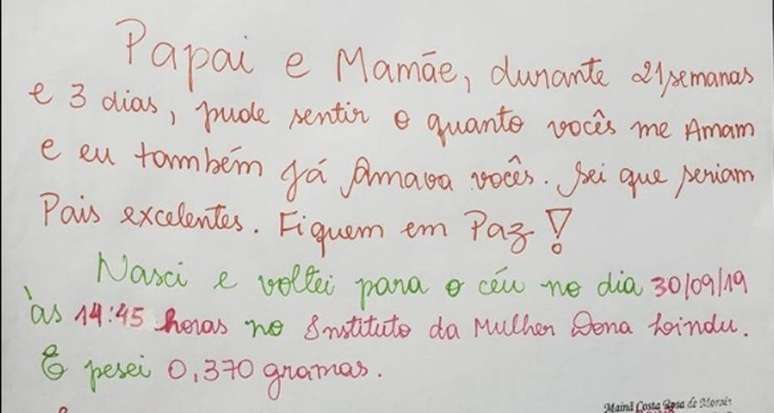 Papai e Mamãe, durante 21 semanas
e 3 dias, pude sentir o quanto vocês me Amam
e eu também já Amava vocês. Sei que seriam
Pais excelentes. Fiquem em Paz!
Nasci e voltei para o céu no dia 30/09/19
às 14:45 horas no Instituto da Mulher Dona Lindu.
E pesei 0,370 gramas.
Mainã Costa Rosa de Morais